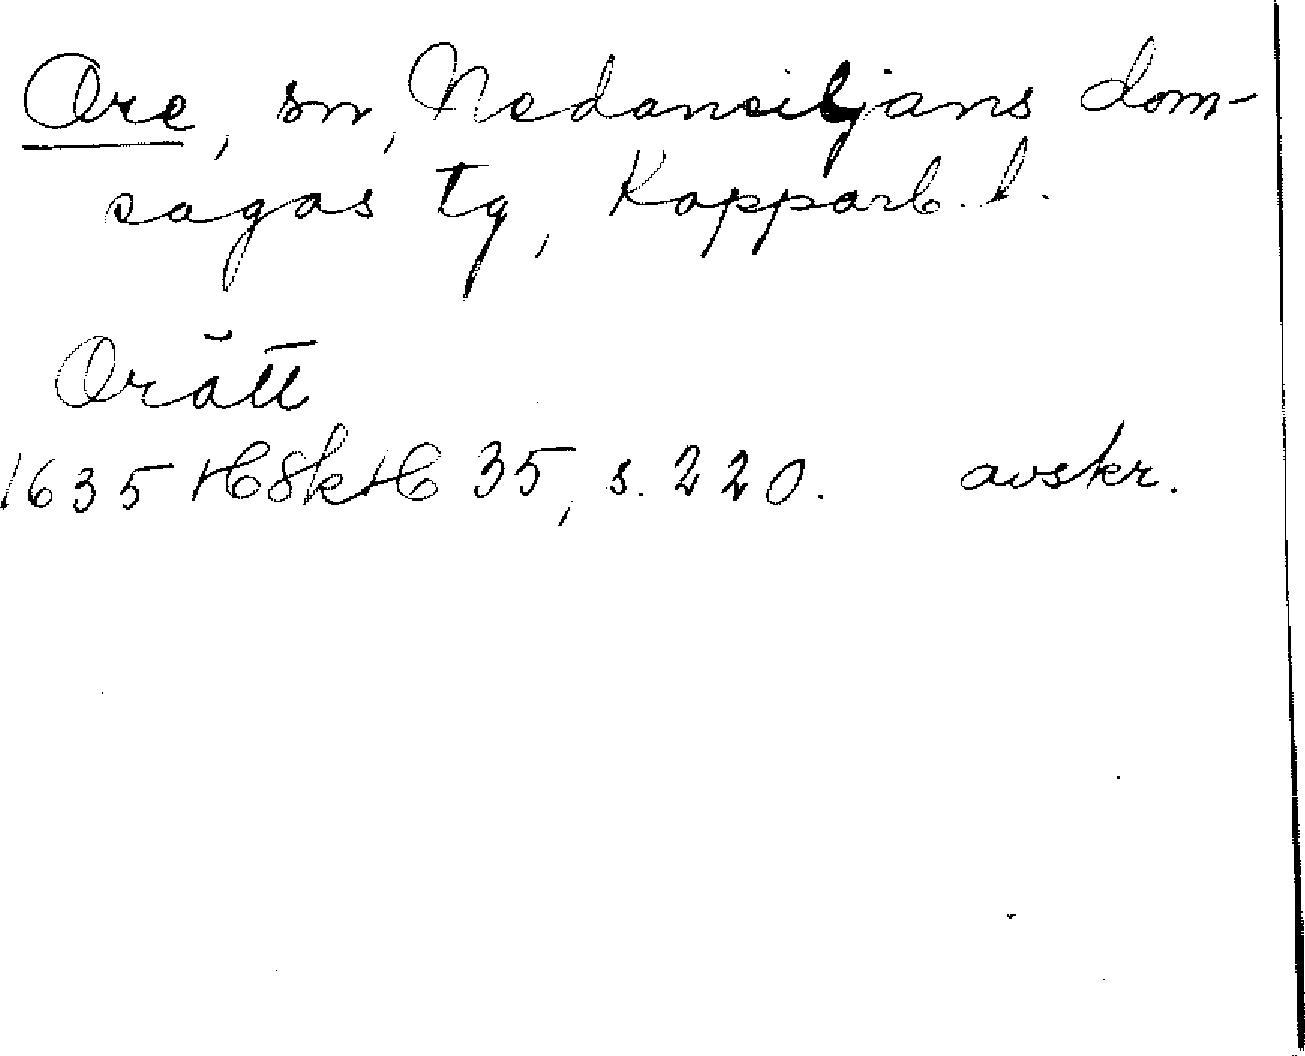 Ore, sn, Nedansiljans dom-
sagas tg, Kopparb. l.
Orått
1635 HSkH 35, s. 220. avskr.